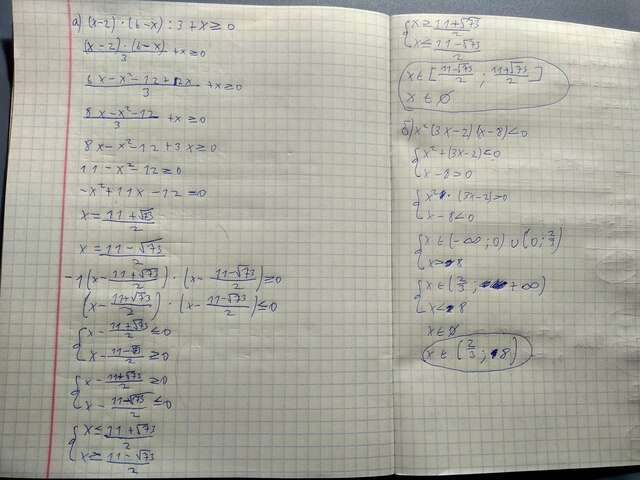 а) (x-2)·(6-x):3+x≥0
(x-2)·(6-x)/3 +x≥0
6x-x²-12+2x/3 +x≥0
8x-x²-12/3 +x≥0
8x-x²-12+3x≥0
11-x²-12≥0
-x²+11x-12=0
x=11+√73/2
x=11-√73/2
-1(x-11+√73/2)·(x-11-√73/2)≥0
(x-11+√73/2)·(x-11-√73/2)≤0
{x-11+√73/2≤0
{x-11-√73/2≥0
{x-11+√73/2≥0
{x-11-√73/2≤0
{x≤11+√73/2
{x≥11-√73/2
{x≥11+√73/2
{x≤11-√73/2
x∈[11-√73/2; 11+√73/2]
x∈∅
б) x²(3x-2)(x-8)<0
{x²+(3x-2)<0
{x-8>0
{x²·(3x-2)>0
{x-8<0
{x∈(-∞;0)∪(0;2/3)
{x>8
{x∈(2/3;+∞)
{x<8
x∈∅
x∈(2/3;8)